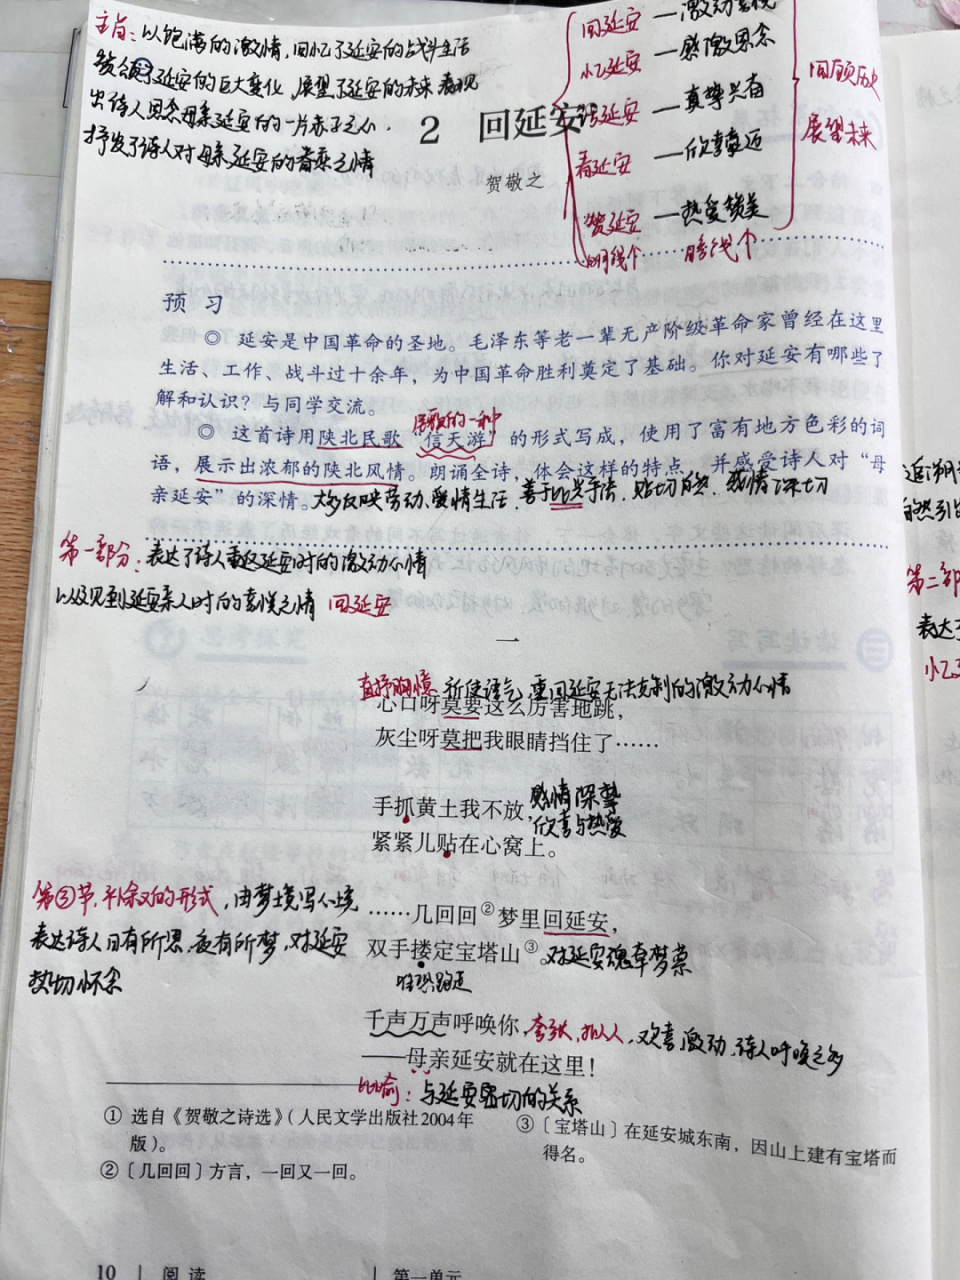 主旨：以饱满的激情，回忆了延安的战斗生活
了延安的巨大变化，展望了延安的未来，表现
出诗人思念母亲延安的一片赤子之心，
抒发了诗人对母亲延安的眷恋之情
2 回延安
贺敬之
回延安—激动喜悦
忆延安—感激思念
话延安—真挚兴奋
看延安—欣喜豪迈
赞延安—热爱赞美
明线个 暗线个
回顾历史
展望未来
预 习
◎ 延安是中国革命的圣地。毛泽东等老一辈无产阶级革命家曾经在这里
生活、工作、战斗过十余年，为中国革命胜利奠定了基础。你对延安有哪些了
解和认识？与同学交流。
民歌的一种
◎ 这首诗用陕北民歌“信天游”的形式写成，使用了富有地方色彩的词
语，展示出浓郁的陕北风情。朗诵全诗，体会这样的特点，并感受诗人对“母
亲延安”的深情。大多反映劳动、爱情生活，善于比兴手法，贴切自然，感情深切
第一部分：表达了诗人重回延安时的激动心情
以及见到延安亲人时的喜悦之情 回延安
一
直抒胸臆 祈使语气，重回延安无法克制的激动心情
心口呀莫要这么厉害地跳，
灰尘呀莫把我眼睛挡住了……
手抓黄土我不放，感情深挚
欣喜与热爱
紧紧儿贴在心窝上。
第③节，补叙的形式，由梦境写心境
表达诗人日有所思，夜有所梦，对延安
热切怀念
……几回回②梦里回延安，
双手搂定宝塔山③。对延安魂牵梦萦
唯恐跑远
千声万声呼唤你，夸张，拟人，欢喜，激动，诗人呼唤之多
——母亲延安就在这里！
比喻：与延安密切的关系
① 选自《贺敬之诗选》（人民文学出版社2004年
版）。
②〔几回回〕方言，一回又一回。
③〔宝塔山〕在延安城东南，因山上建有宝塔而
得名。
10 | 阅 读 | 第一单元
追溯
自然引出
第二部
表达了
忆延